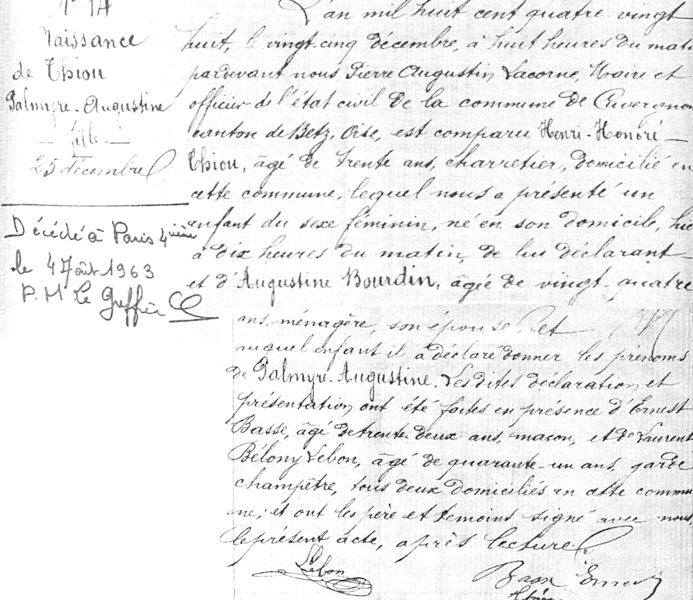 N° 14
Naissance
de Thiou
Palmyre-Augustine
— fille —
25 décembre
Décédé à Paris 4ième
le 4 Août 1963
P. M Le Greffier
L'an mil huit cent quatre-vingt
huit, le vingt-cinq décembre, à huit heures du mati
pardevant nous Pierre Augustin Lacorne, Maire et
officier de l'état civil de la commune de Cuvergnon
canton de Betz, Oise, est comparu Henri-Honoré-
Thiou, âgé de trente ans, charretier, domicilié en
cette commune, lequel nous a présenté un
enfant du sexe féminin, né en son domicile, hie
à dix heures du matin, de lui déclarant
et d'Augustine Bourdin, âgée de vingt-quatre
ans, ménagère, son épouse, et
auquel enfant il a déclaré donner les prénoms
de Palmyre-Augustine. Lesdites déclaration et
présentation ont été faites en présence d'Ernest
Basse, âgé de trente-deux ans, maçon, et de Laurent
Bélony Lebon, âgé de quarante-un ans, garde
champêtre, tous deux domiciliés en cette commu
ne; et ont les père et témoins signé avec nous
le présent acte, après lecture.
Lebon
Ernest